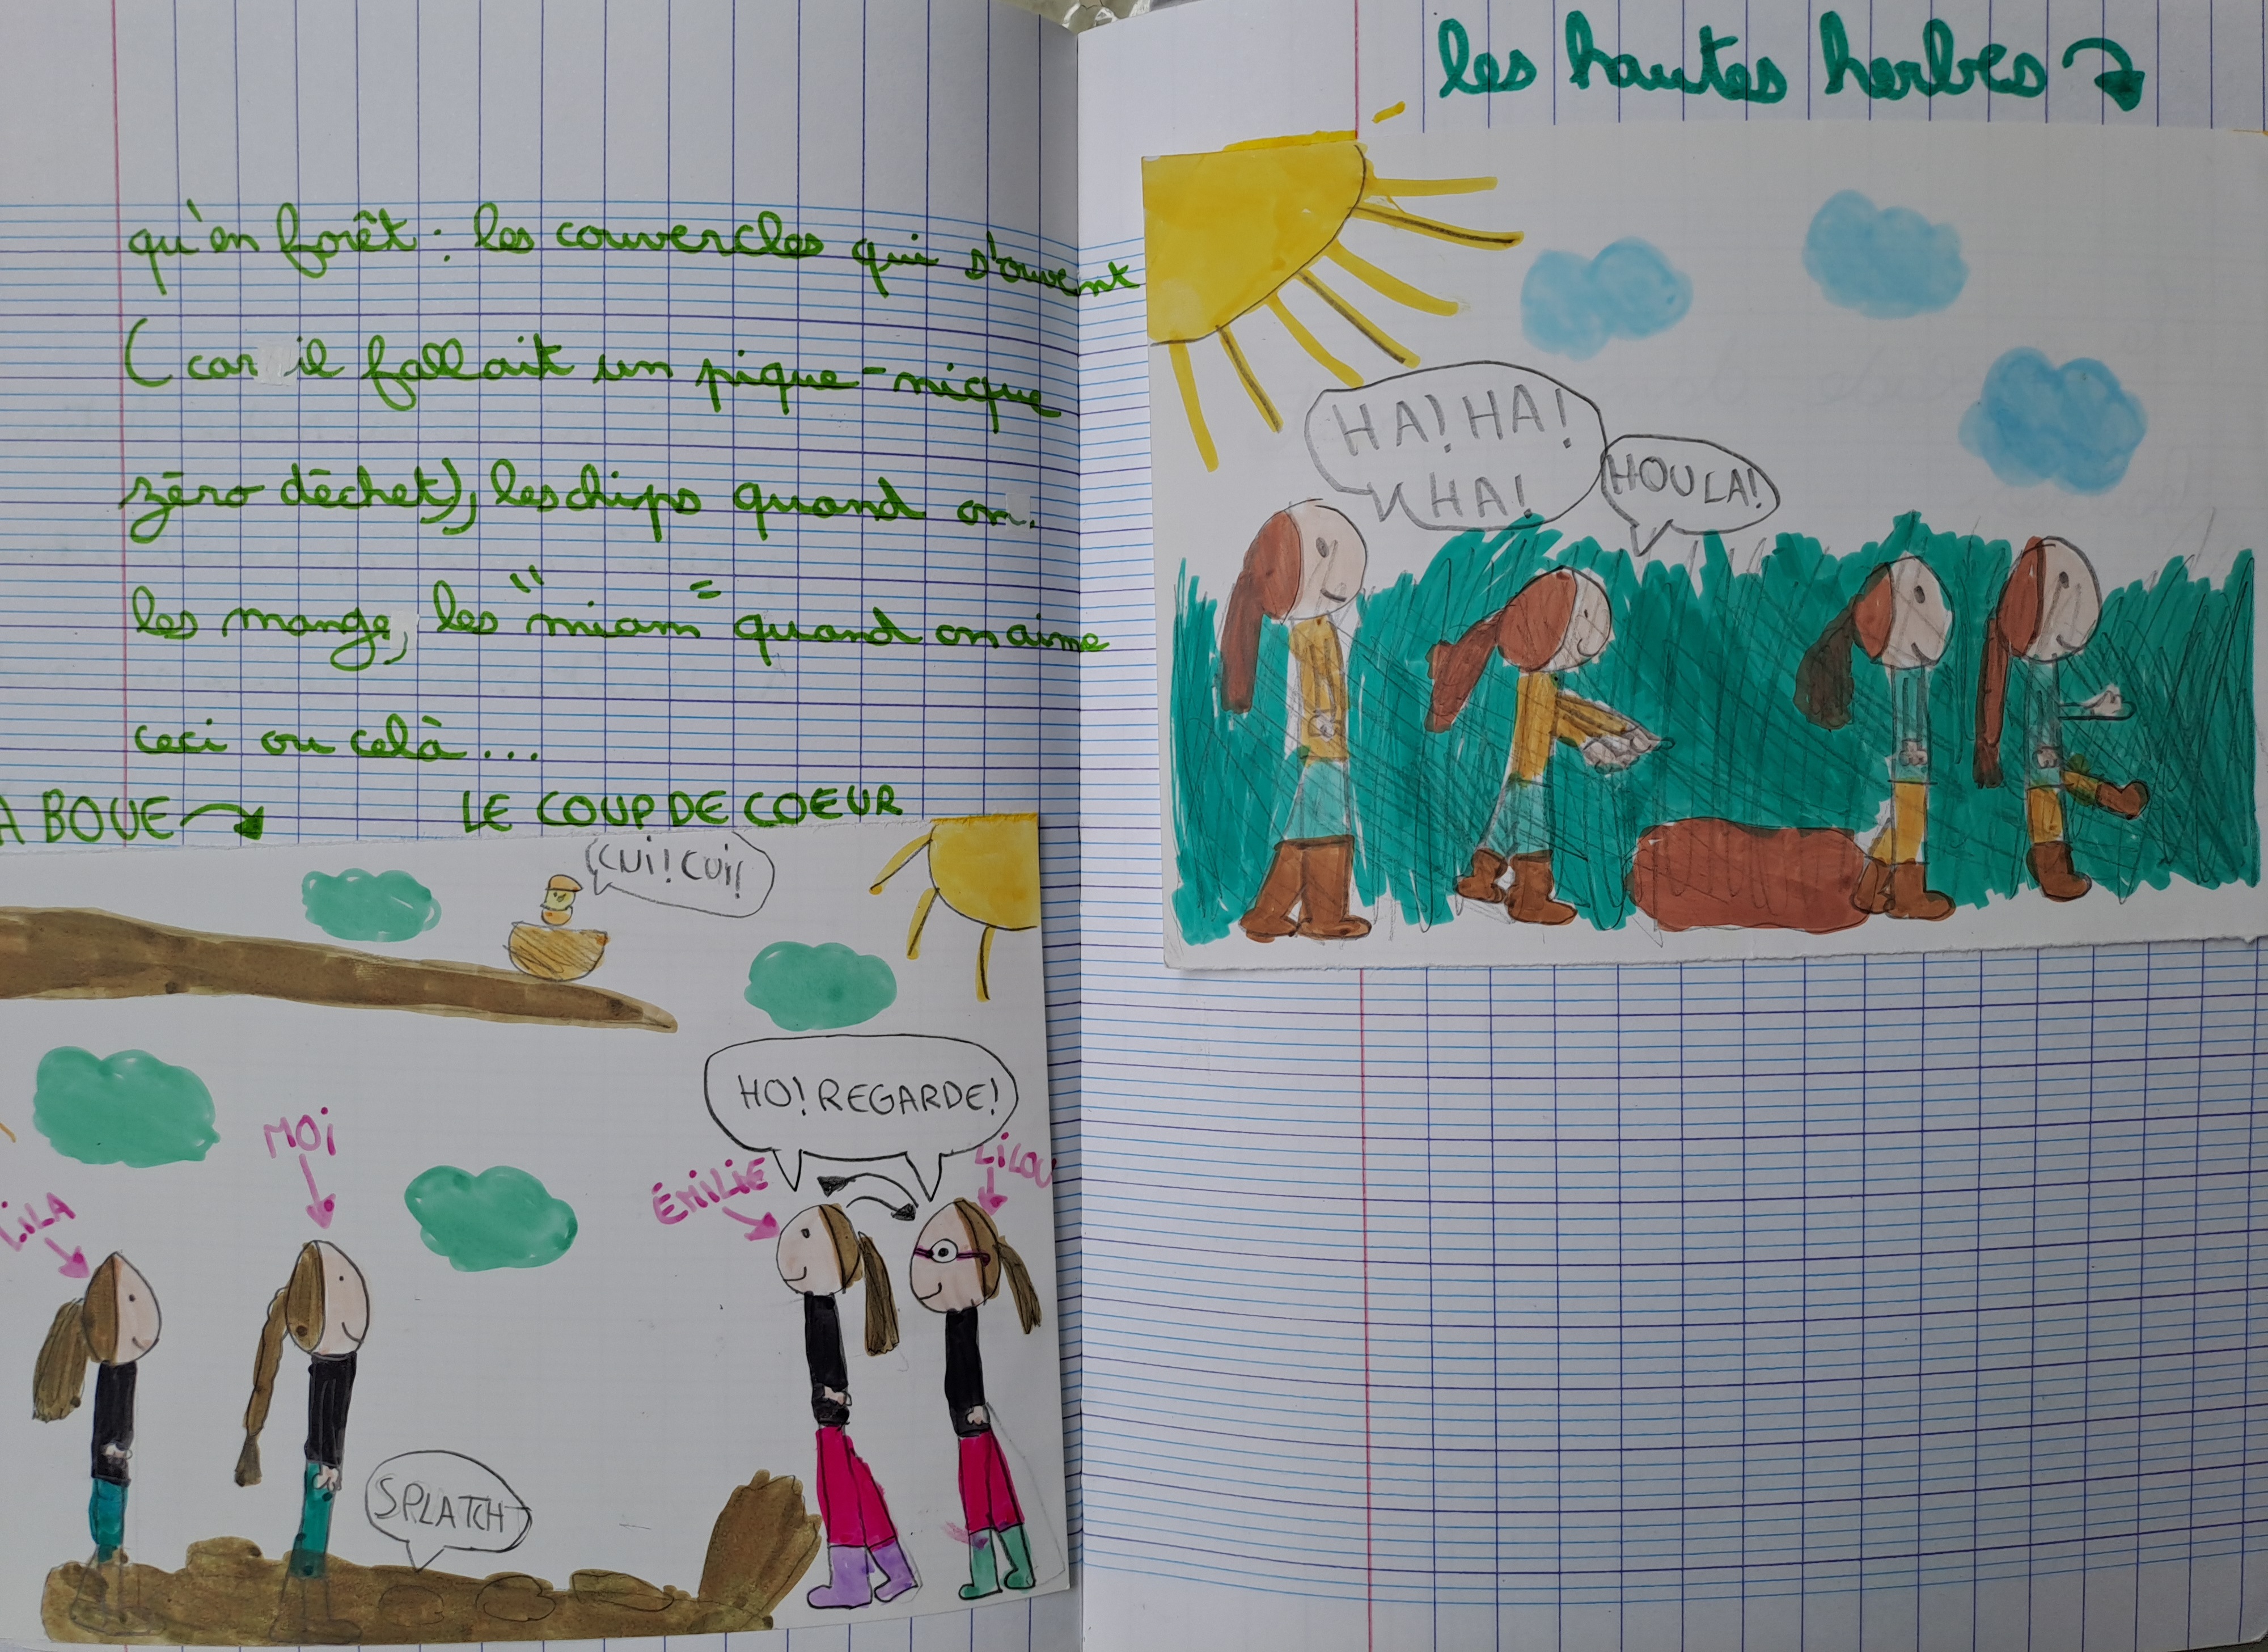 qu'en forêt : les couvercles qui s'ouvent
( car il fallait un pique-nique
zéro déchet), les chips quand on
les mange, les "miam" quand on aime
ceci ou celà...
A BOUE
LE COUP DE COEUR
CUI! CUI!
HO! REGARDE!
MOI
LILA
ÉMILIE
LILOU
SPLATCH
les hautes herbes
HA! HA!
HA!
HOULA!